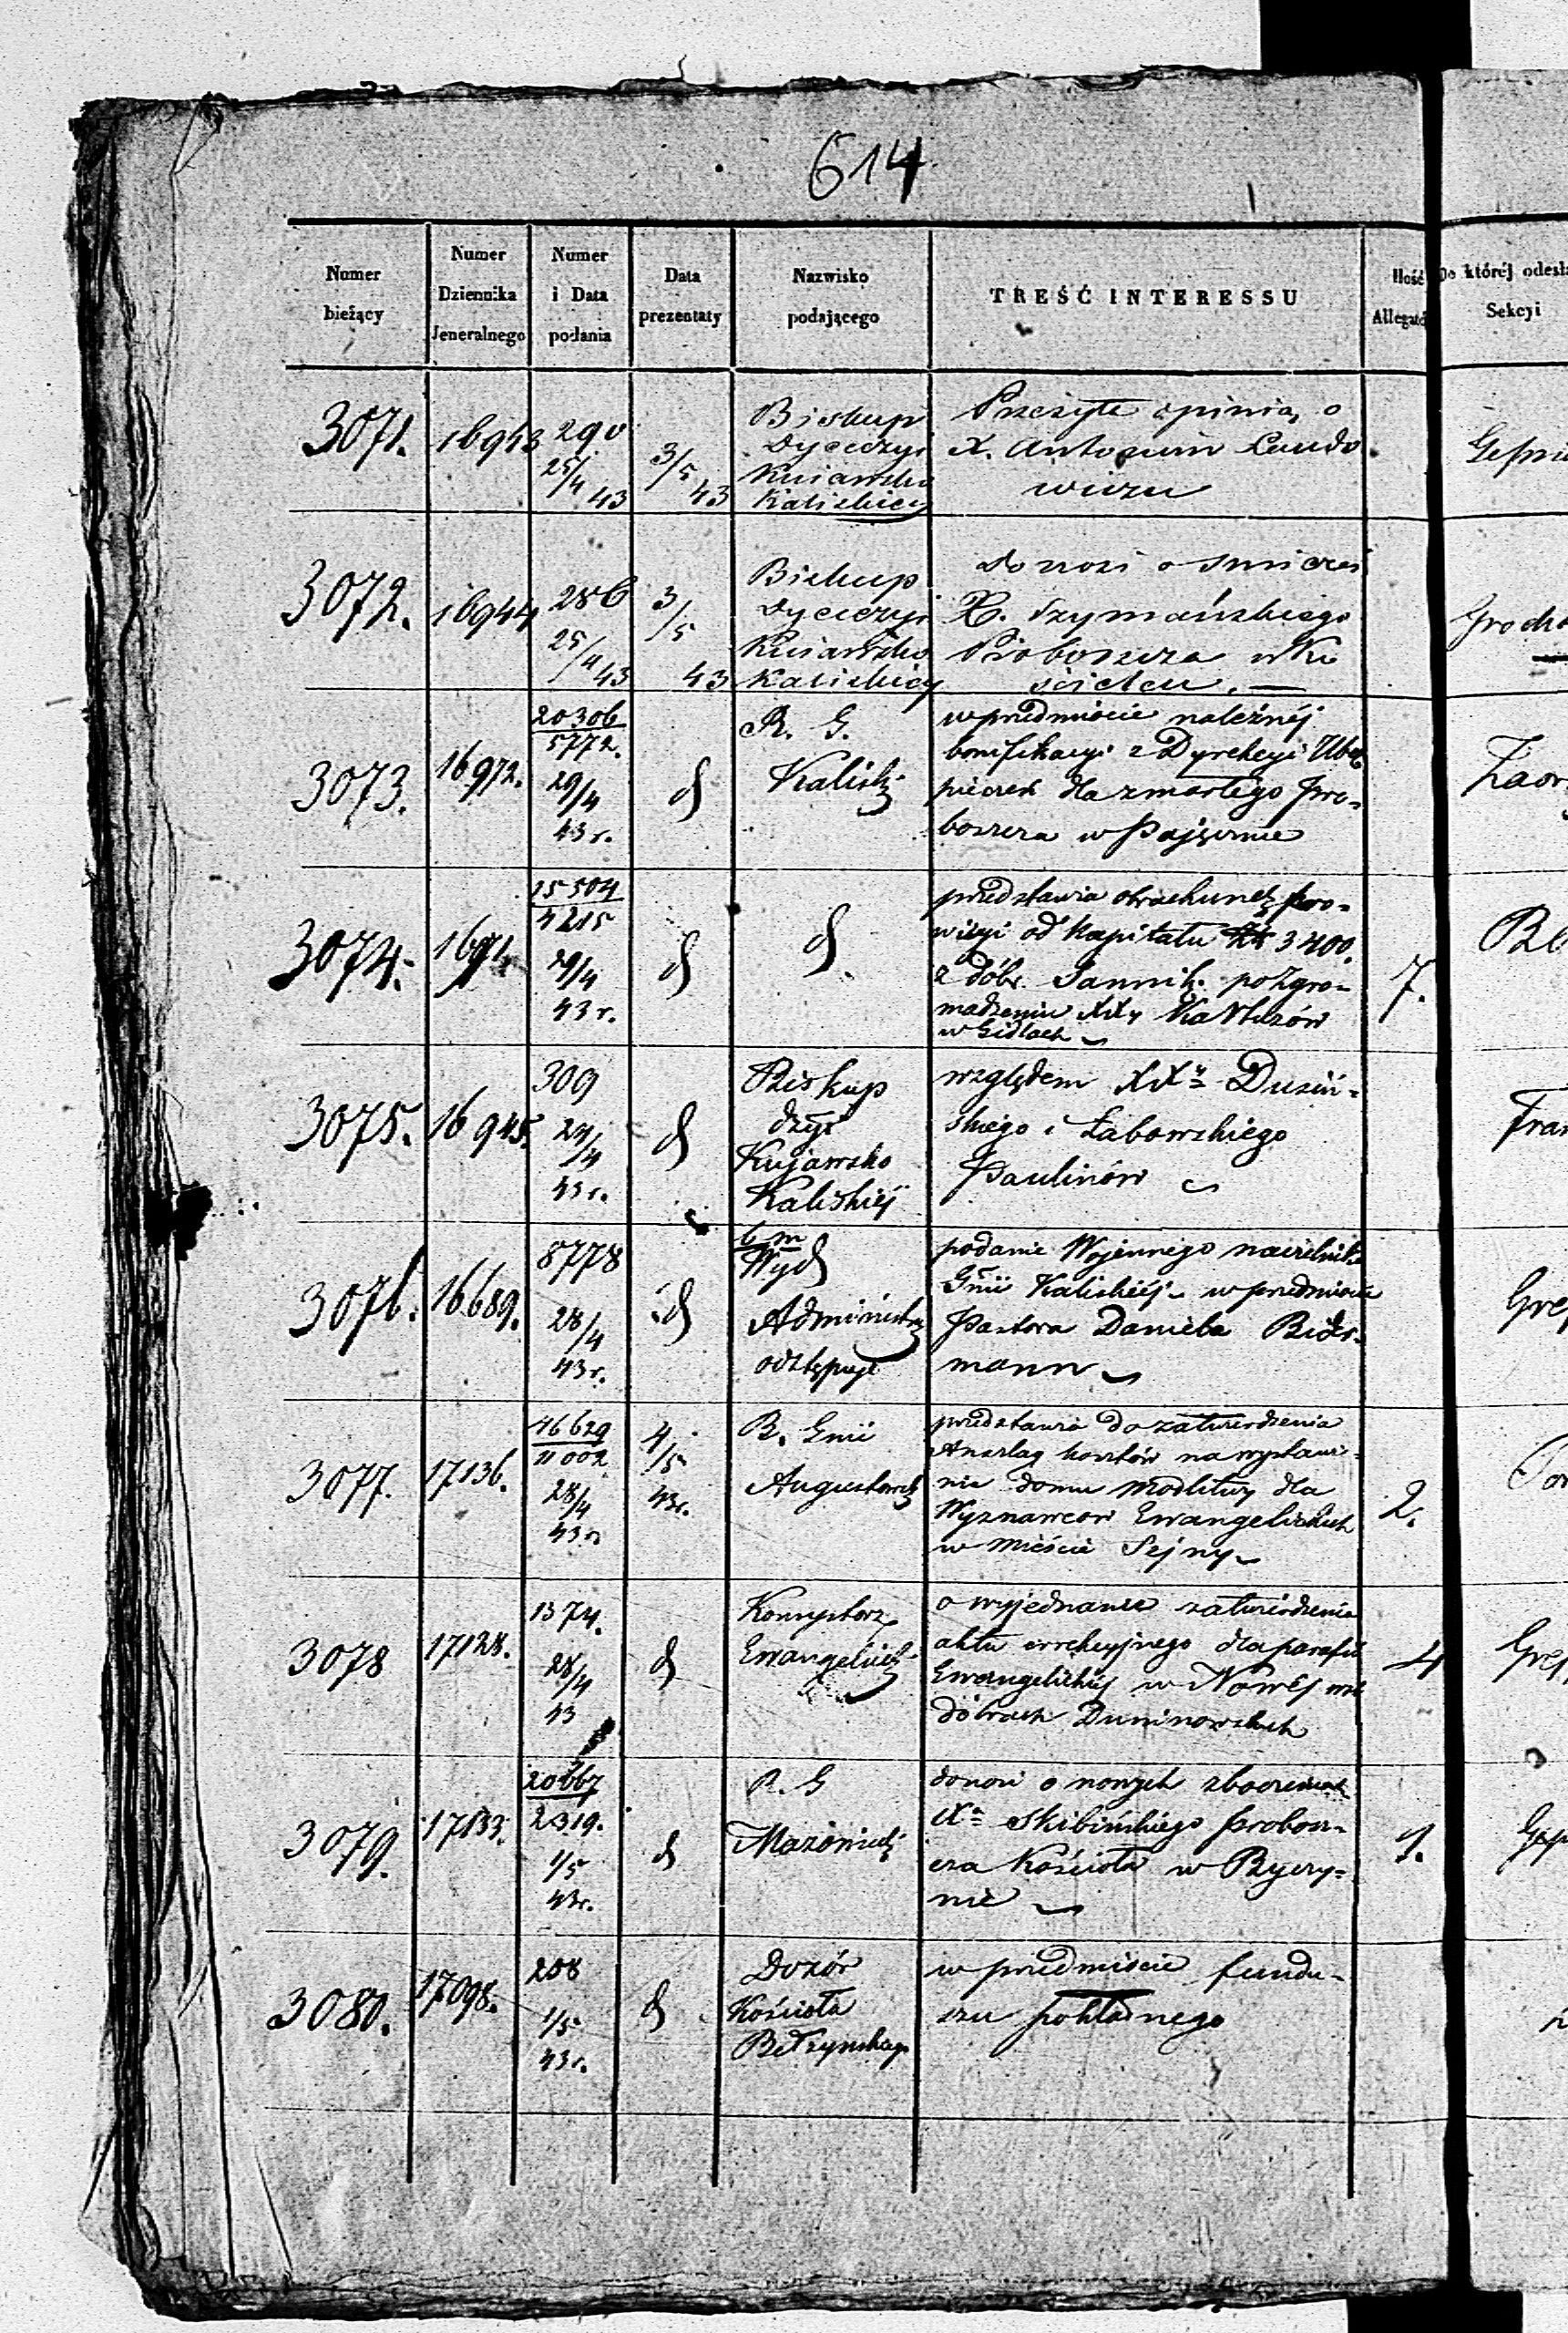 614
Numer bieżący
Numer Dziennika Jeneralnego
Numer i Data podania
Data prezentaty
Nazwisko podającego
TREŚĆ INTERESSU
Ilość
Do której
Sekcyi
3071.
16943
290
25/4 43
3/5 43
Biskup
Dyecezyi
Kaliskiey
Przesyła opinią o
X. Antonim
wiczu
3072.
16944
286
25/4 43
3/5 43
Biskup
Dyecezyi
Kaliskiey
Donosi o śmierci
X. Szymańskiego
Proboszcza w Ko
ścielcu. —
3073.
16972.
20306
5772.
29/4
43 r.
d
R. G.
Kalisk
w przedmiocie należnéj
bonifikacyi z Dyrekcyi Ubez
pieczeń dla zmarłego Pro-
boszcza w Pajęcznie
3074.
16971
15504
4215
29/4
43 r.
d
d
przedstawia obrachunek pro-
wizyi od Kapitału 3400.
z dóbr po Zgro-
madzeniu XXy Kartuzów
w Gidlach
7.
3075.
16945.
309
24/4
43 r.
d
Biskup
dzyi
Kujawsko
Kaliskiéj
względem XXy
skiego i Łabowskiego
Paulinów
3076.
16689.
8778
28/4
43 r.
d
Wyd
Administr
odstępuje
podanie Wojennego naczelnika
Gnii Kaliskiéj w przedmiocie
Pastora Daniela
mann
3077.
17136.
46629
11002
28/4
43 r
4/5
43r.
R. Gnii
Augustowsk
przedstawia do zatwierdzenia
Anszlag kosztów na wystawie-
nie domu modlitwy dla
Wyznawców Ewangelickich
w mieście Sejny
2.
3078
17128.
1374.
28/4
43
d
Konsystorz
Ewangelick
o wyjednanie zatwierdzenia
aktu errekcyjnego dla parafii
Ewangelickiéj w Nowéj wsi
dóbrach Duninowskich
4
3079.
17133.
20667
2319.
1/5
43r.
d
R. G
Mazowieck
donosi o nowych zboczeniach
Xa Skibińskiego Probosz-
cza Kościoła w Byczy-
nie
9.
3080.
17098.
208
1/5
43 r.
d
Dozór
Kościoła
w przedmiocie fundu-
szu pokładnego